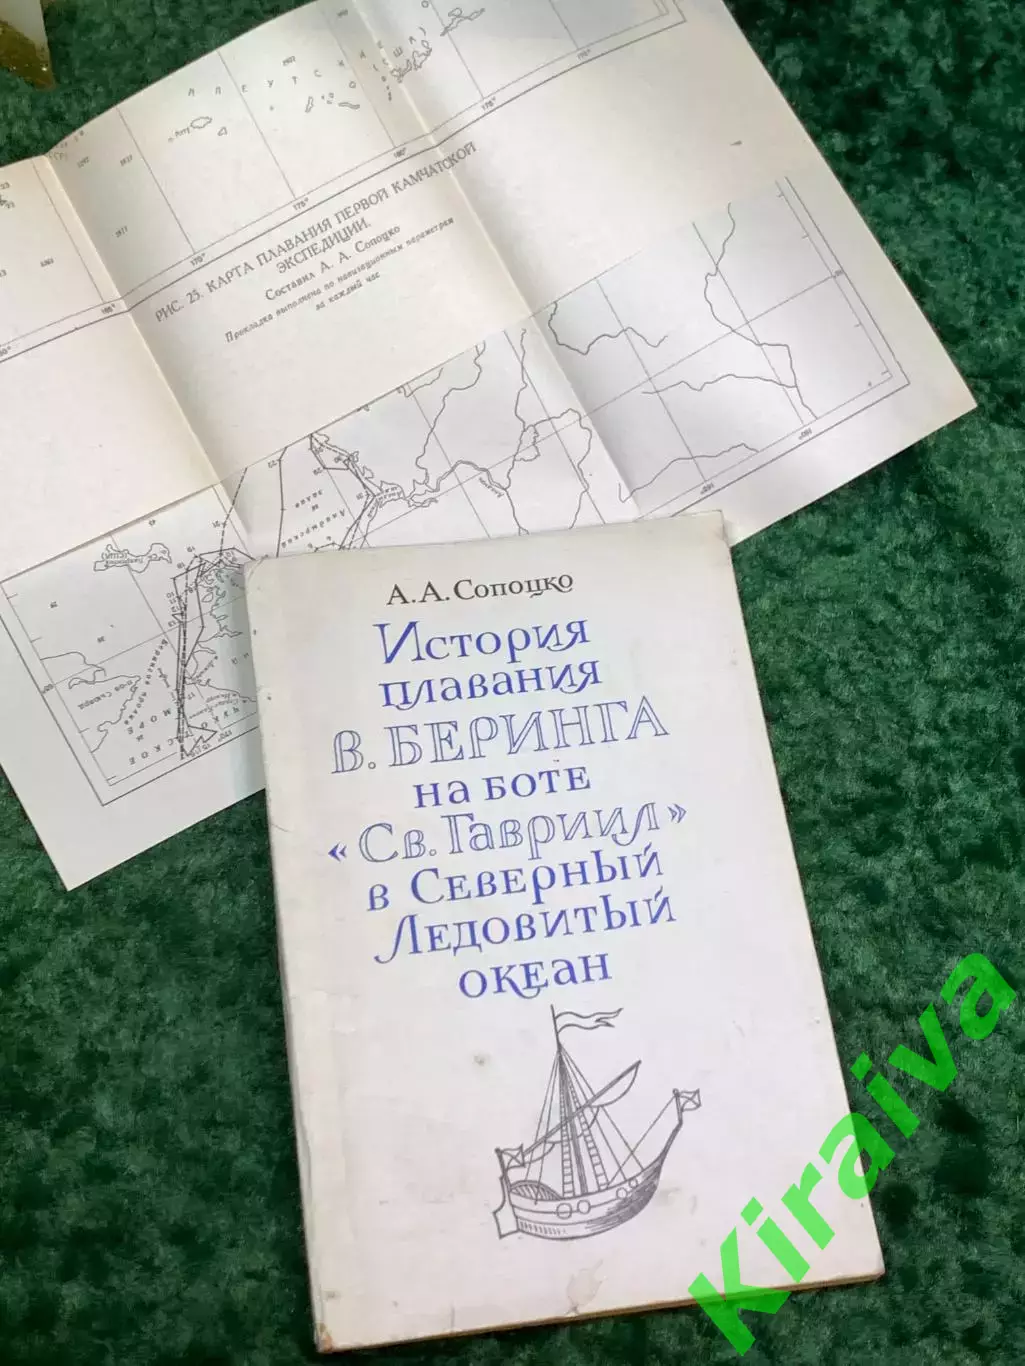 АЛЕУТСКИЕ
О (США)
180°
175°
170°
РИС. 25. КАРТА ПЛАВАНИЯ ПЕРВОЙ КАМЧАТСКОЙ
ЭКСПЕДИЦИИ.
Составил А. А. Сопоцко
Прокладка выполнена по навигационным параметрам
за каждый час
А. А. Сопоцко
История
плавания
В. БЕРИНГА
на боте
«Св. Гавриил»
в Северный
Ледовитый
океан
Kiraiva